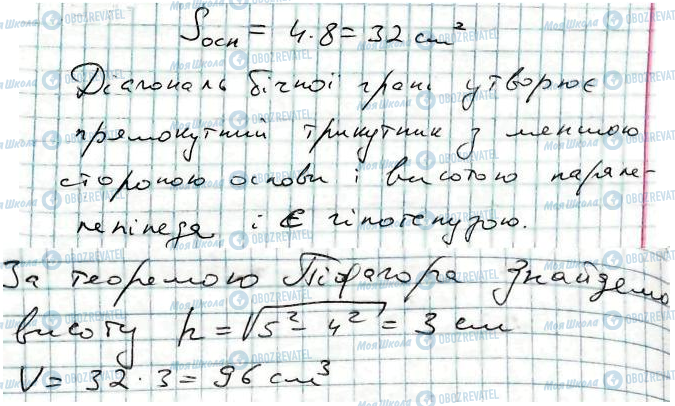 Sосн = 4·8 = 32 см²
Діагональ бічної грані утворює
прямокутний трикутник з меншою
стороною основи і висотою парале-
лепіпеда і є гіпотенузою.
За теоремою Піфагора знайдемо
висоту h = √5² - 4² = 3 см
V = 32·3 = 96 см³